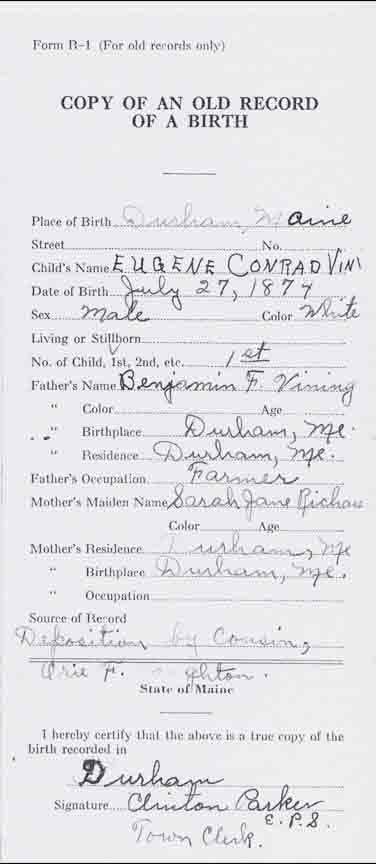 Form R-1 (For old records only)
COPY OF AN OLD RECORD
OF A BIRTH
Place of Birth Durham, Maine
Street No.
Child's Name EUGENE CONRAD VIN
Date of Birth July 27, 1874
Sex Male Color White
Living or Stillborn
No. of Child, 1st, 2nd, etc. 1st
Father's Name Benjamin F. Vining
" Color Age
" Birthplace Durham, Me.
" Residence Durham, Me.
Father's Occupation Farmer
Mother's Maiden Name Sarah Jane
Color Age
Mother's Residence Durham, Me
" Birthplace Durham, Me.
" Occupation
Source of Record
Deposition by Cousin,
F.
State of Maine
I hereby certify that the above is a true copy of the
birth recorded in
Durham
Signature Clinton Parker
E.P.S.
Town Clerk.